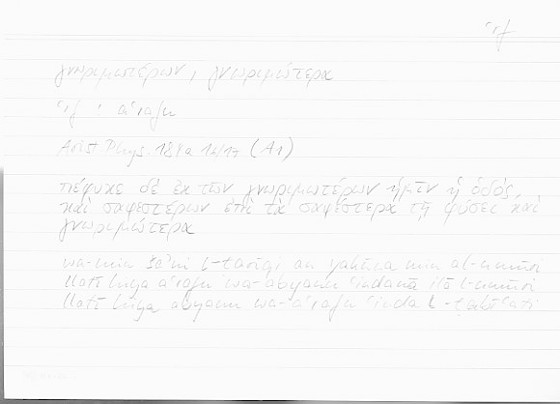 ʿrf
γνωριμωτέρων, γνωριμώτερα
ʿrf : aʿrafu
Arist. Phys. 184a 16/17 (A1)
πέφυκε δὲ ἐκ τῶν γνωριμωτέρων ἡμῖν ἡ ὁδὸς
καὶ σαφεστέρων ἐπὶ τὰ σαφέστερα τῇ φύσει καὶ
γνωριμώτερα
wa-min šaʾni l-ṭarīqi an yakūna min al-umūri
llatī hiya aʿrafu wa-abyanu ʿindanā ilā l-umūri
llatī hiya abyanu wa-aʿrafu ʿinda l-ṭabīʿati